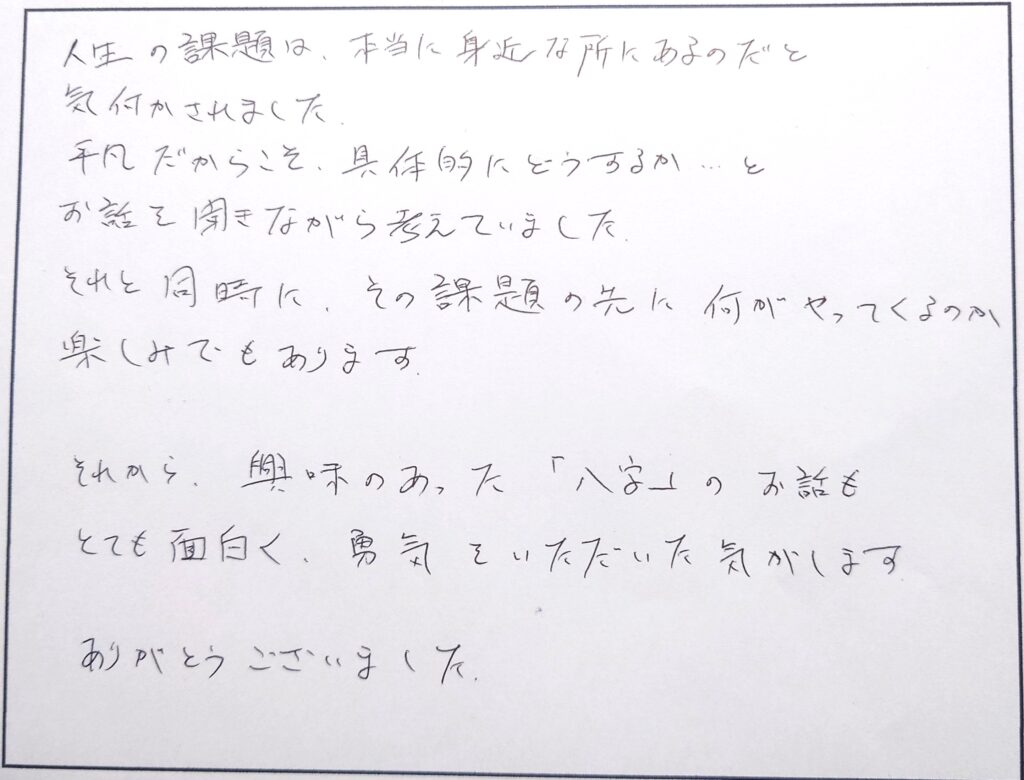 人生の課題は、本当に身近な所にあるのだと
気付かされました.
平凡だからこそ、具体的にどうするか…と
お話を聞きながら考えていました.
それと同時に、その課題の先に何がやってくるのか
楽しみでもあります.
それから、興味のあった「八字」のお話も
とても面白く、勇気をいただいた気がします.
ありがとうございました.